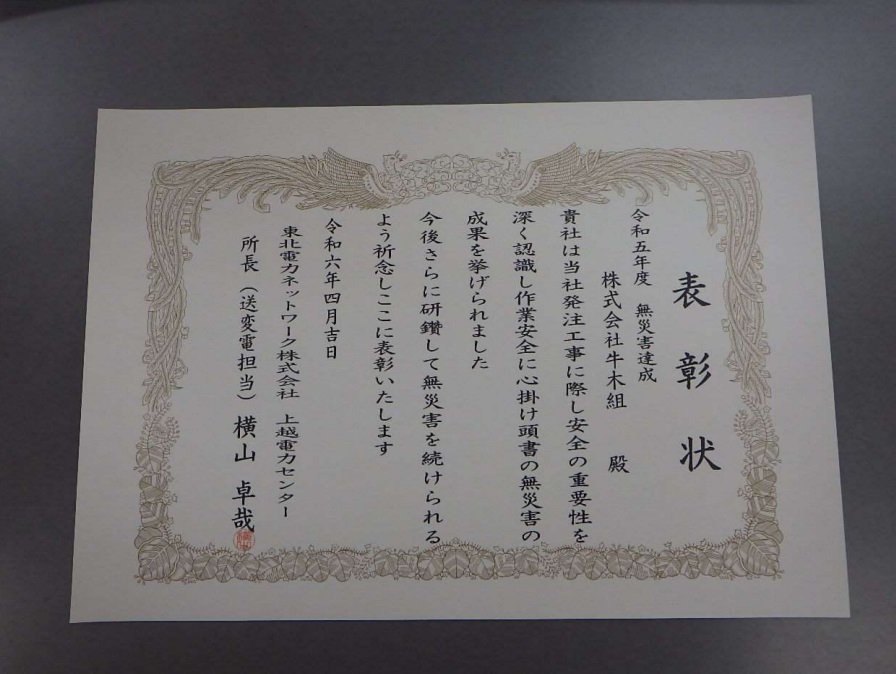 表彰状
令和五年度 無災害達成
株式会社牛木組 殿
貴社は当社発注工事に際し安全の重要性を
深く認識し作業安全に心掛け頭書の無災害の
成果を挙げられました
今後さらに研鑽して無災害を続けられる
よう祈念しここに表彰いたします
令和六年四月吉日
東北電力ネットワーク株式会社 上越電力センター
所長（送変電担当）横山 卓哉